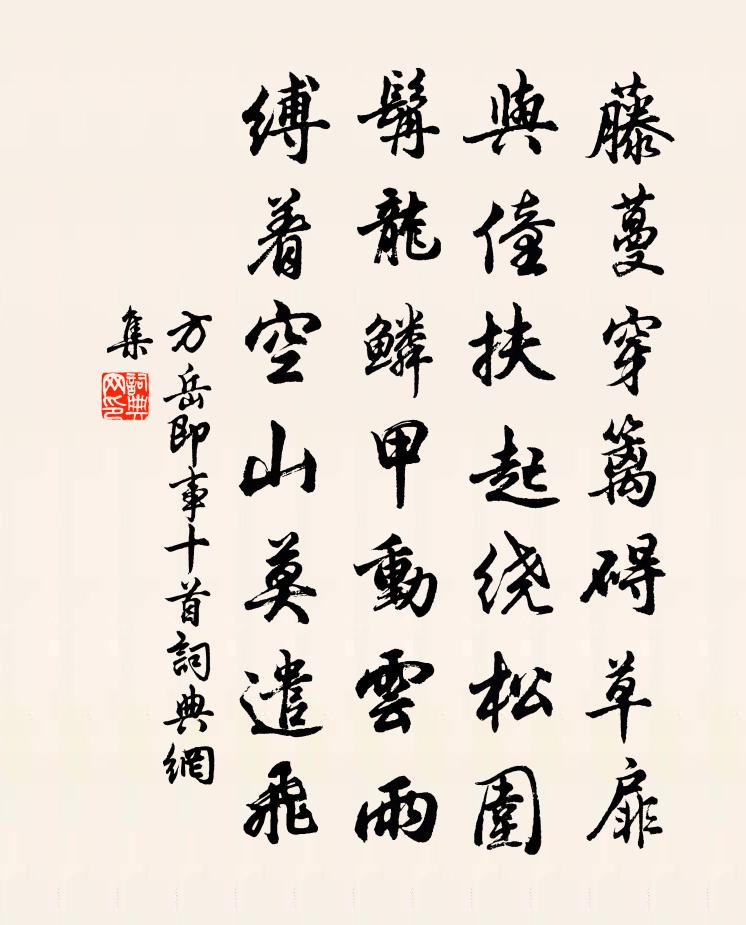 藤蔓穿篱碍草扉
與僮扶起绕松圍
髯龍鱗甲動雲雨
縛着空山莫遣飛
方岳即事十首詞典網
集
詞典网印